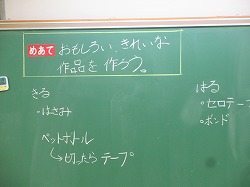 めあて おもしろい、きれいな
作品を作ろう。
きる
・はさみ
ペットボトル
↳切ったらテープ
はる
・セロテープ
・ボンド